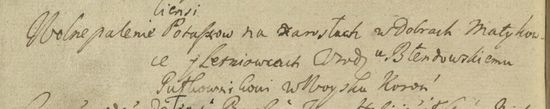 liensi
Wolne palenie Potaszow na zarostach w Dobrach Matyków-
ce y Letniowcach Urodz u. Błendowskiemu
Pułkownikowi w Woysku Koron